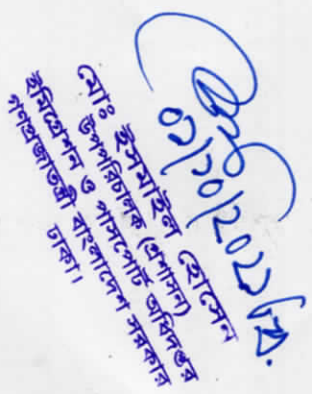 ০১/১০/২০২১ খ্রি.
মোঃ ইসমাইল হোসেন
উপপরিচালক (প্রশাসন)
ইমিগ্রেশন ও পাসপোর্ট অধিদপ্তর
গণপ্রজাতন্ত্রী বাংলাদেশ সরকার
ঢাকা।